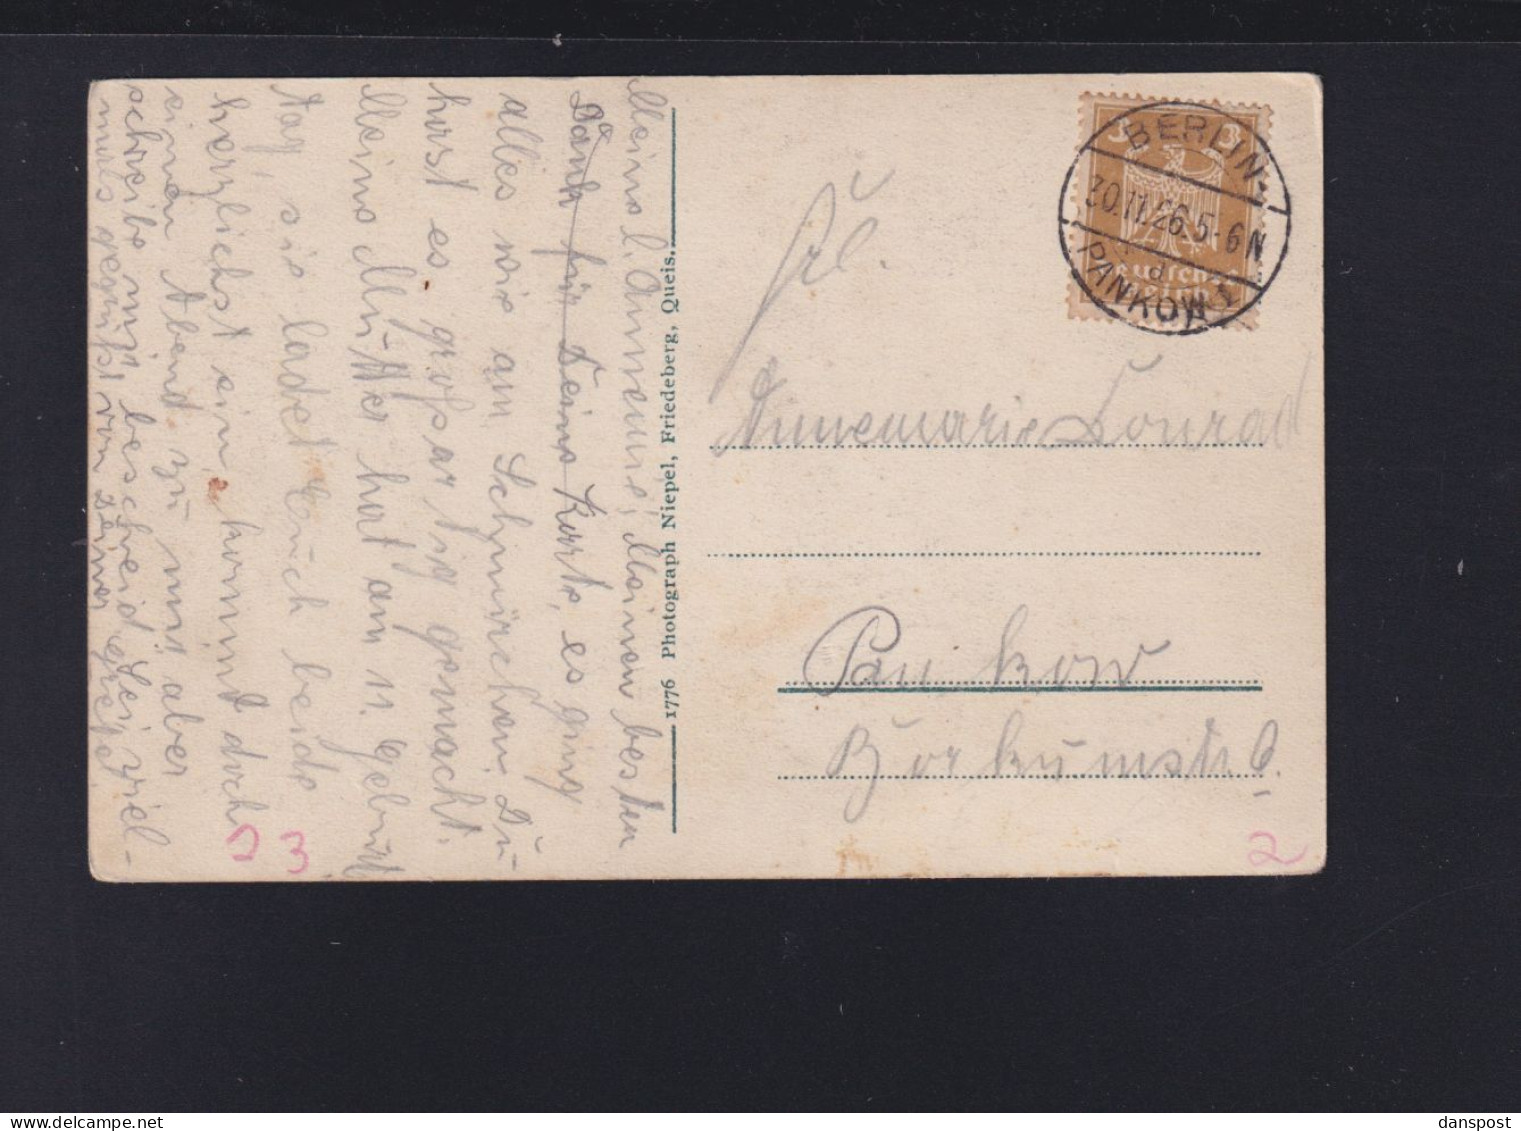 Meine l. Annemie! Meinen besten
Dank für Deine Karte, es ging
alles wie am Schnürchen. Du
hast es großartig gemacht.
Meine Mutter hat am 11. Geburt
tag, sie ladet Euch beide
herzlichst ein, kommt doch
einen Abend zu uns aber
schreibe mir bescheid. Sei viel-
mals gegrüßt von Deiner Grete
1776 Photograph Niepel, Friedeberg, Queis.
3 3
Deutsches
Reich
BERLIN-
30.11.26.5-6N
d
PANKOW 1
Frl.
Annemarie Conrad
Pankow
Borkumstr. 6.
3
2
danspost